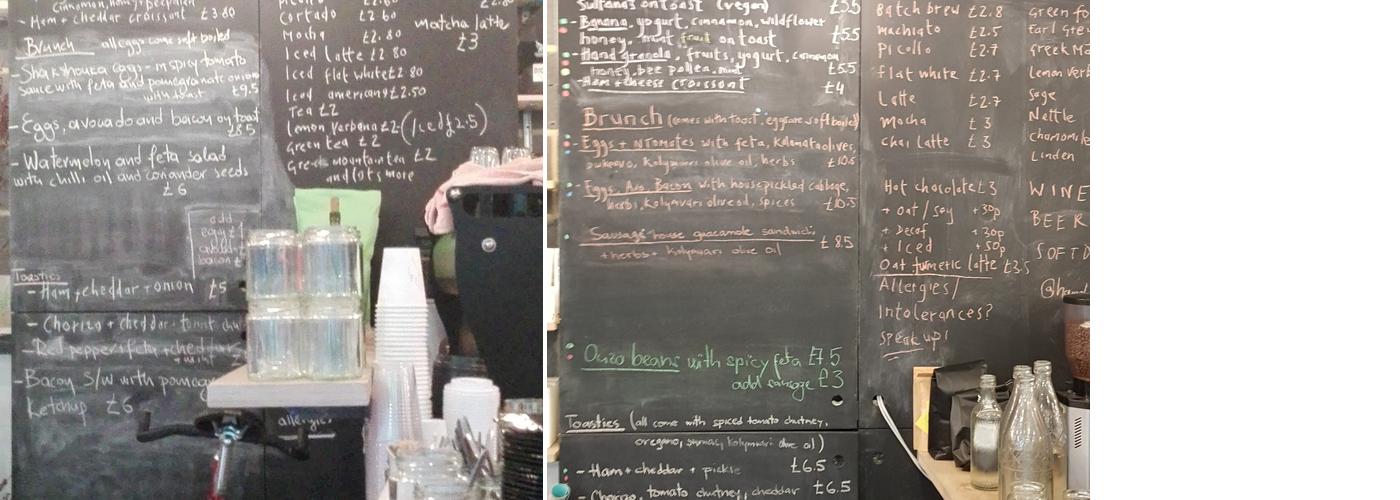 cinnamon, honey, beepollen
- Ham + cheddar croissant £3.80
Brunch all eggs come soft boiled
- Shakshouka eggs - in spicy tomato
sauce with feta and pomegranate onion
with toast £9.5
- Eggs, avocado and bacon on toast
£8.5
- Watermelon and feta salad
with chilli oil and coriander seeds
£6
add
egg £1
bacon
Toasties
- Ham + cheddar + onion £5
- Chorizo + cheddar + tomat chu
- Red peppers feta + cheddar
+ mint
- Bacon s/w with pomegr
ketchup £6
Cortado £2.60
Mocha £2.80
Iced Latte £2.80
Iced flat white £2.80
Iced americano £2.50
Tea £2
Lemon Verbana £2 (Iced £2.5)
Green tea £2
Greek mountain tea £2
and lots more
matcha latte
£3
allergic
Sultanas on toast (vegan) £5.5
- Banana, yogurt, cinnamon, wildflower
honey, mint fruit on toast £5.5
- Hand granola, fruits, yogurt, cinnamon
honey, bee pollen, mint £5.5
- Ham + cheese croissant £4
Brunch (comes with toast, eggs are soft boiled)
- Eggs + NTomates with feta, Kalamata olives,
Kolymvari olive oil, herbs £10.5
- Eggs, Avo, Bacon with house pickled cabbage,
herbs, Kolymvari olive oil, spices £10.5
- Sausage house guacamole sandwich
+ herbs + Kolymvari olive oil £8.5
- Ouzo beans with spicy feta £7.5
add sausage £3
Toasties (all come with spiced tomato chutney,
oregano, sumac, Kolymvari olive oil)
- Ham + cheddar + pickle £6.5
- Chorizo, tomato chutney, cheddar £6.5
Batch brew £2.8
machiato £2.5
Picollo £2.7
flat white £2.7
Latte £2.7
mocha £3
chai latte £3
Hot chocolate £3
+ oat / soy +30p
+ Decaf +30p
+ Iced +50p
Oat tumeric latte £3.5
Allergies /
Intolerances?
speak up!
Green
Earl Grey
Greek Mo
Lemon verb
Sage
Nettle
chamomile
Linden
WINE
BEER
SOFT D